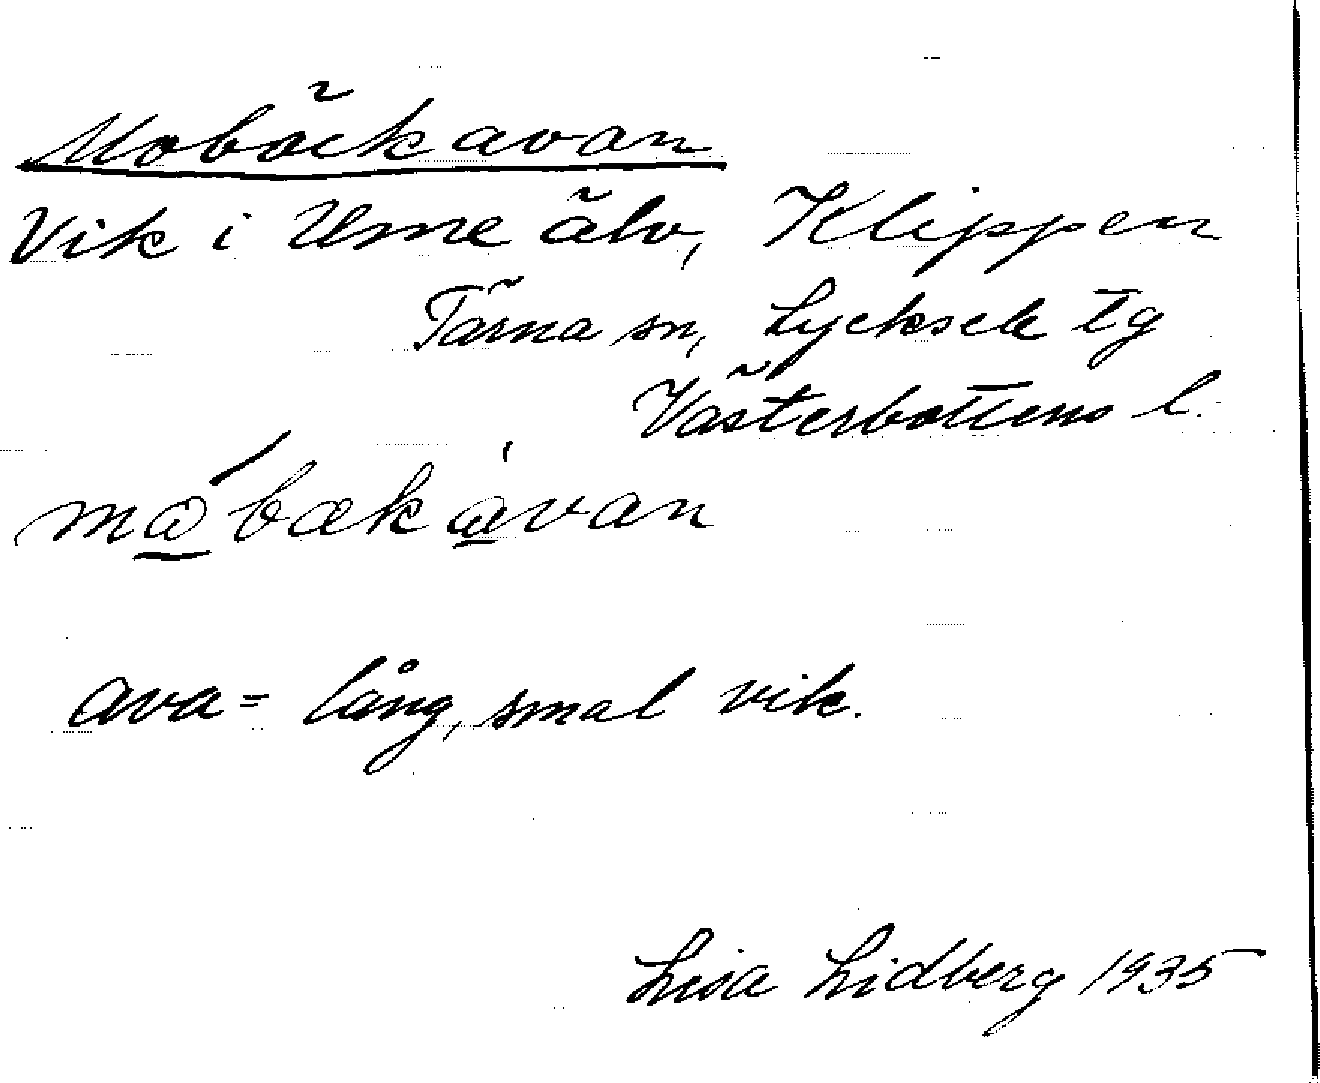 Mobäckavan
Vik i Ume älv, Klippen
Tärna sn, Lycksele tg
Västerbottens l.
ma̲bækavan
ava = lång, smal vik.
Lisa Lidberg 1935